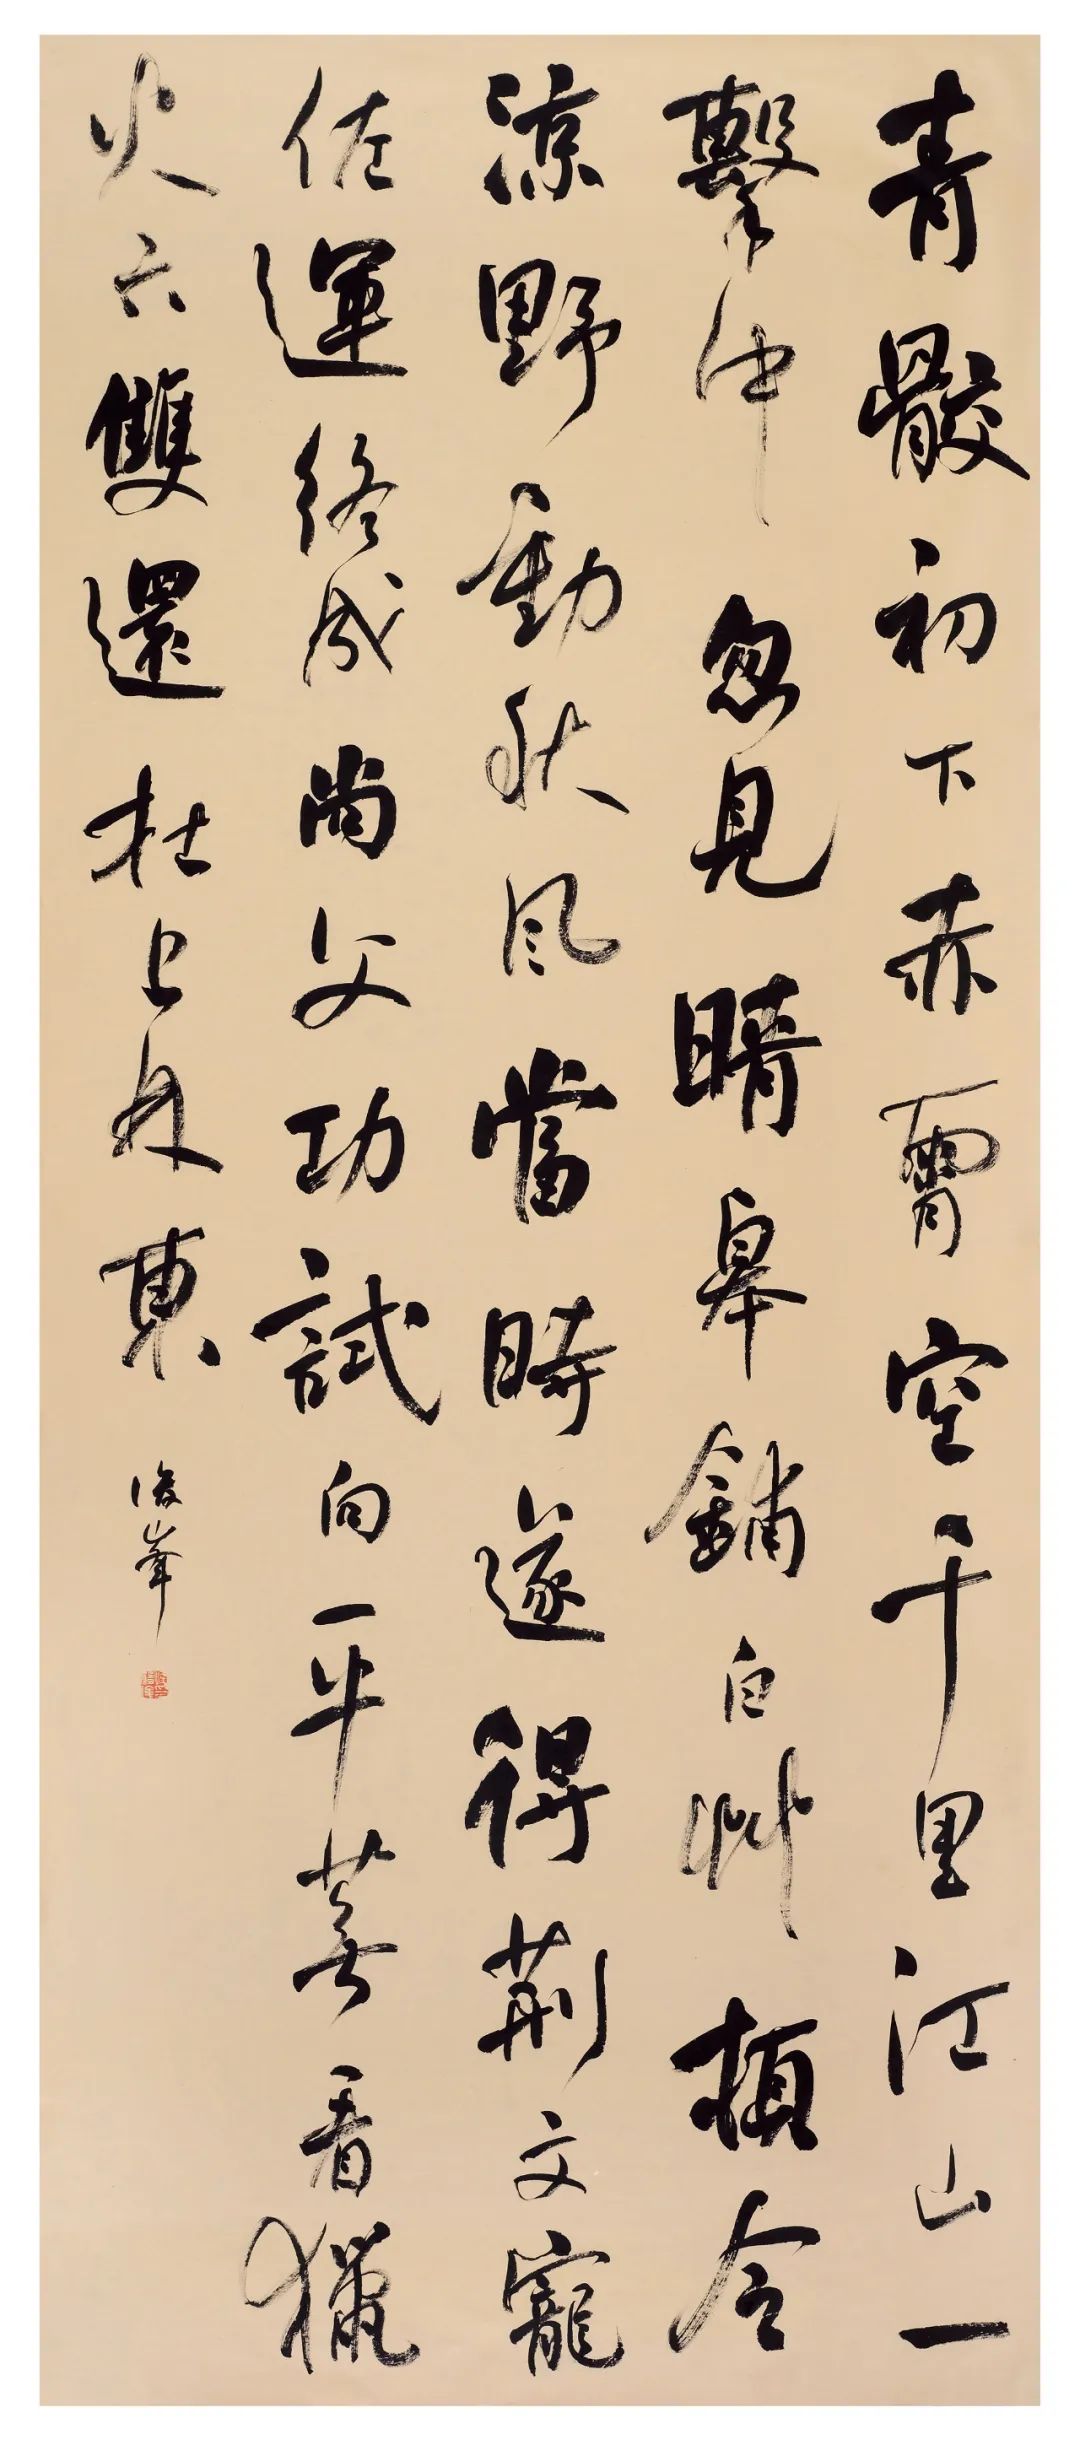 青骹初下赤霄空千里江山一
擊中忽見晴皋鋪白艸頓令
涼野動秋風當時遂得荆文寵
佐運終成尚父功試向平蕪看獵
火六雙還在上林東
俊峯